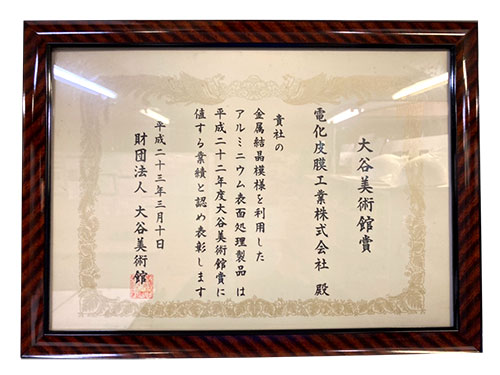 大谷美術館賞
電化皮膜工業株式会社 殿
貴社の
金属結晶模様を利用した
アルミニウム表面処理製品は
平成二十二年度大谷美術館賞に
値する業績と認め表彰します
平成二十三年三月十日
財団法人 大谷美術館